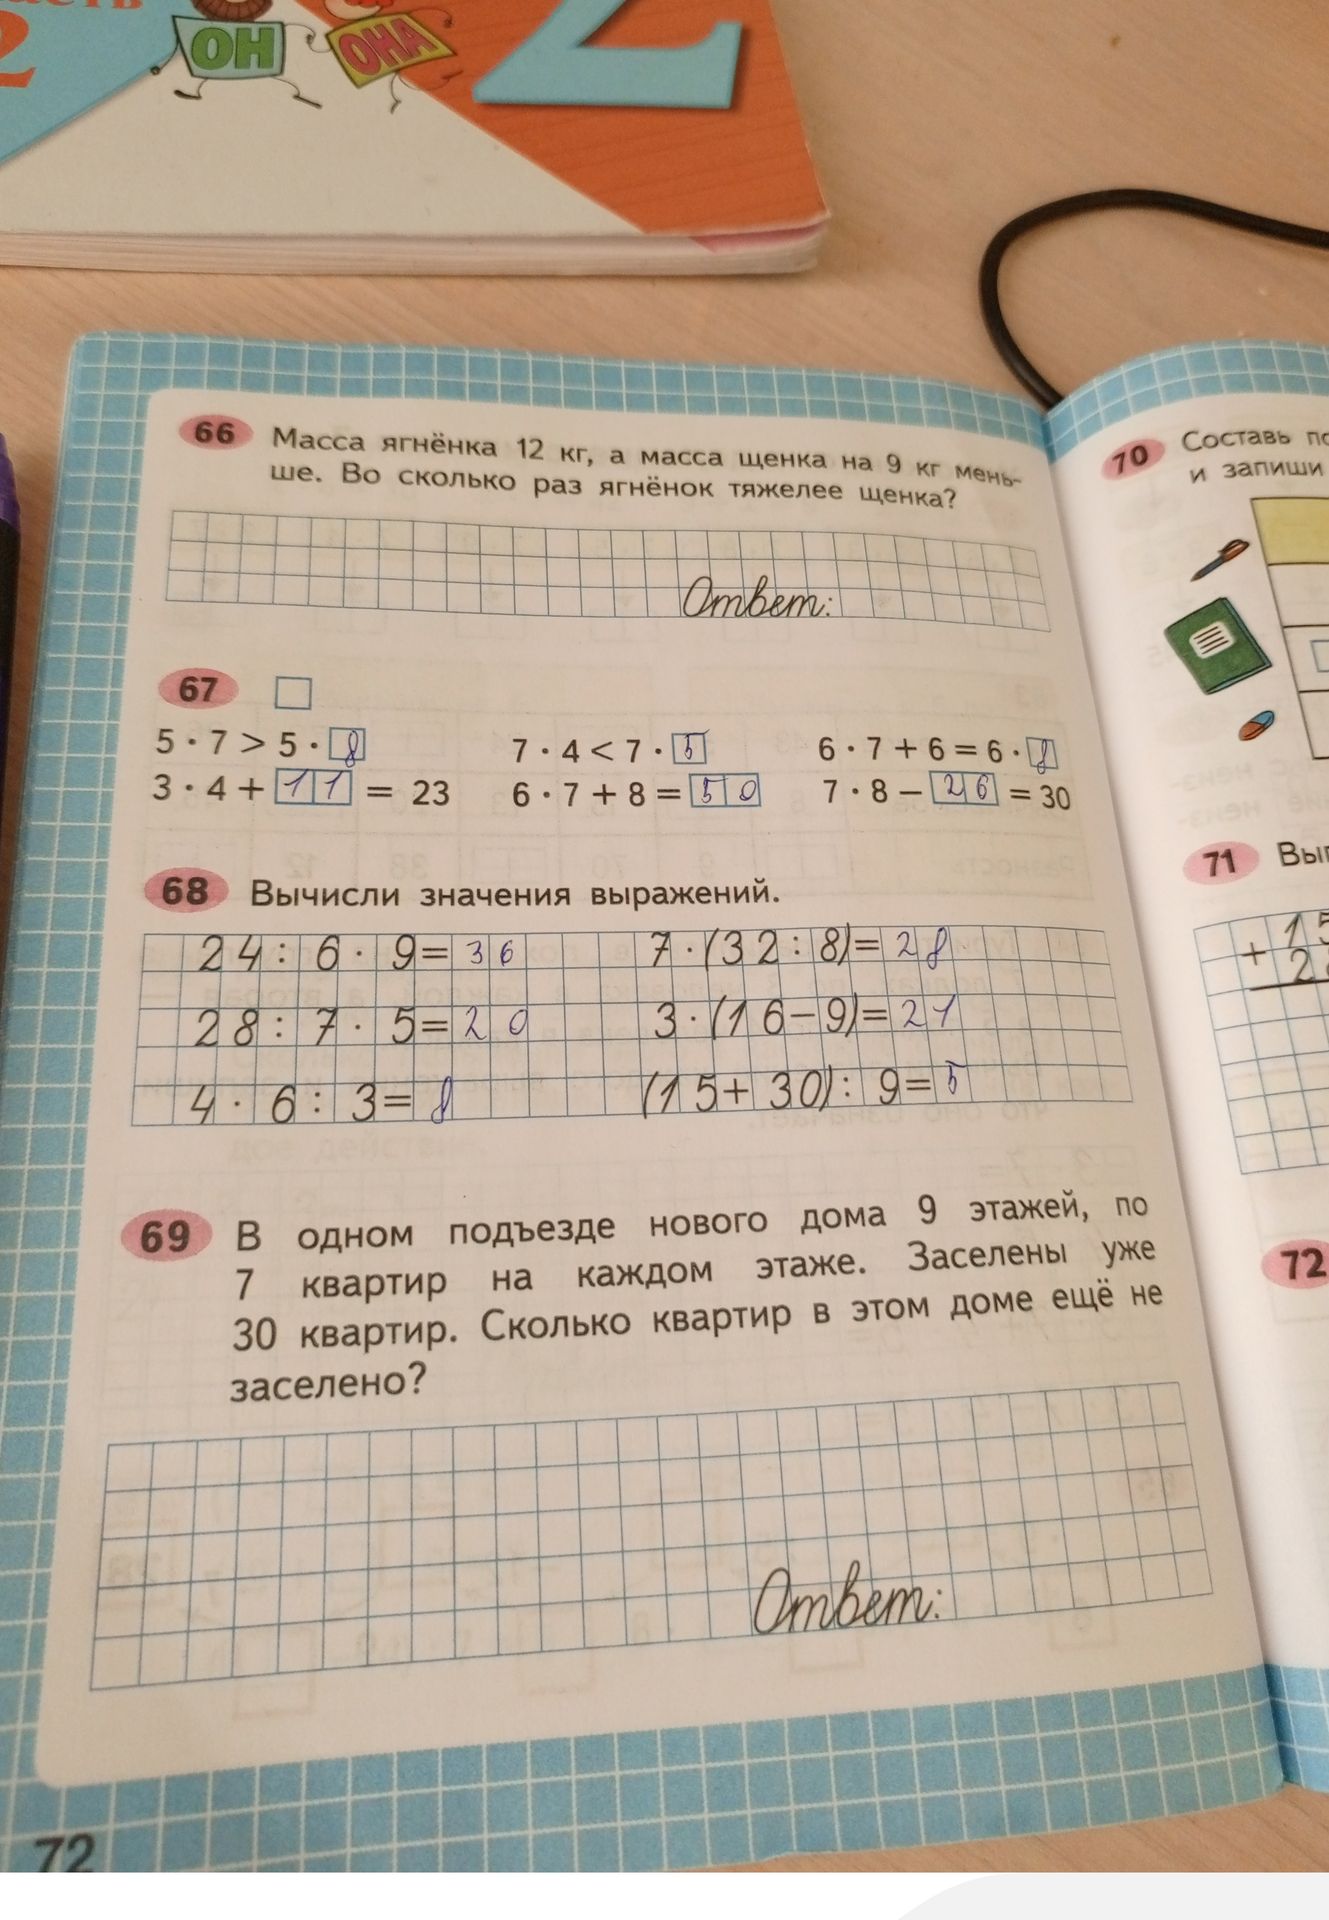 2
ОН
ОНА
2
66 Масса ягнёнка 12 кг, а масса щенка на 9 кг мень-
ше. Во сколько раз ягнёнок тяжелее щенка?
Ответ:
67
5 · 7 > 5 · 8 7 · 4 < 7 · 5 6 · 7 + 6 = 6 · 8
3 · 4 + 11 = 23 6 · 7 + 8 = 50 7 · 8 − 26 = 30
68 Вычисли значения выражений.
24 : 6 · 9 = 36 7 · (32 : 8) = 28
28 : 7 · 5 = 20 3 · (16 − 9) = 21
4 · 6 : 3 = 8 (15 + 30) : 9 = 5
69 В одном подъезде нового дома 9 этажей, по
7 квартир на каждом этаже. Заселены уже
30 квартир. Сколько квартир в этом доме ещё не
заселено?
Ответ:
72
70 Составь
и запиши
71
+ 15
72